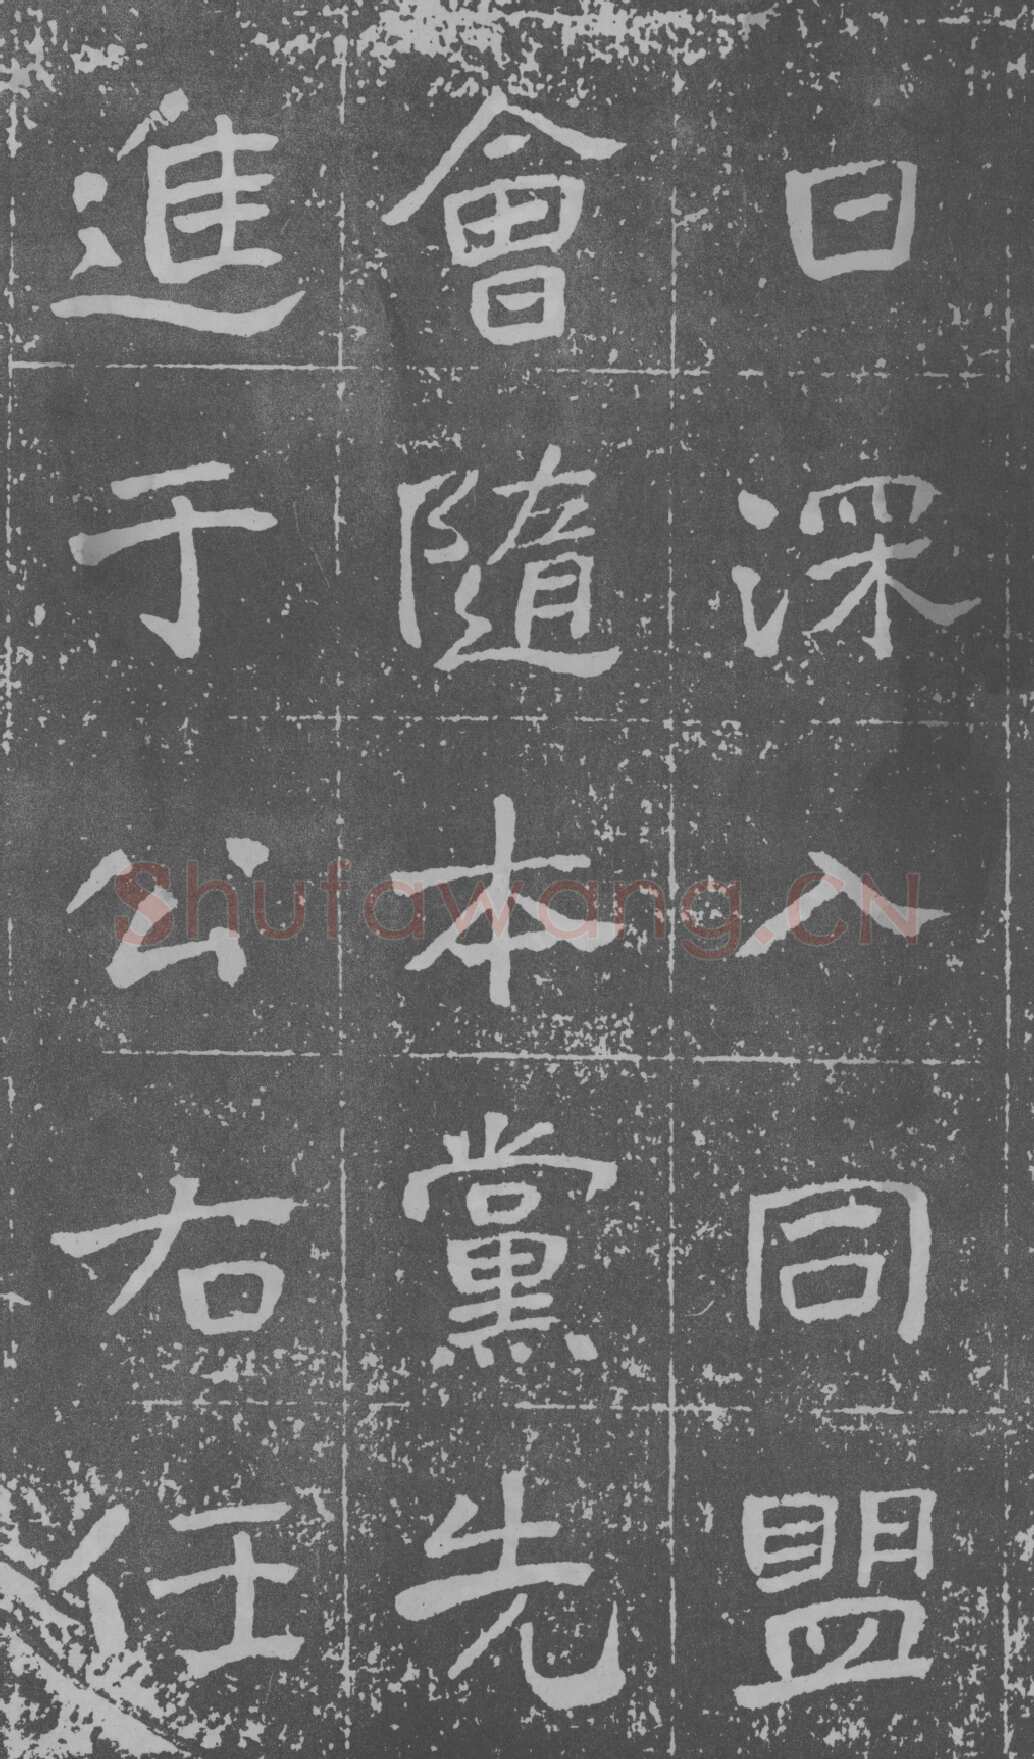 日深入同盟
會隨本黨先
進于公右任
Shufawang.CN